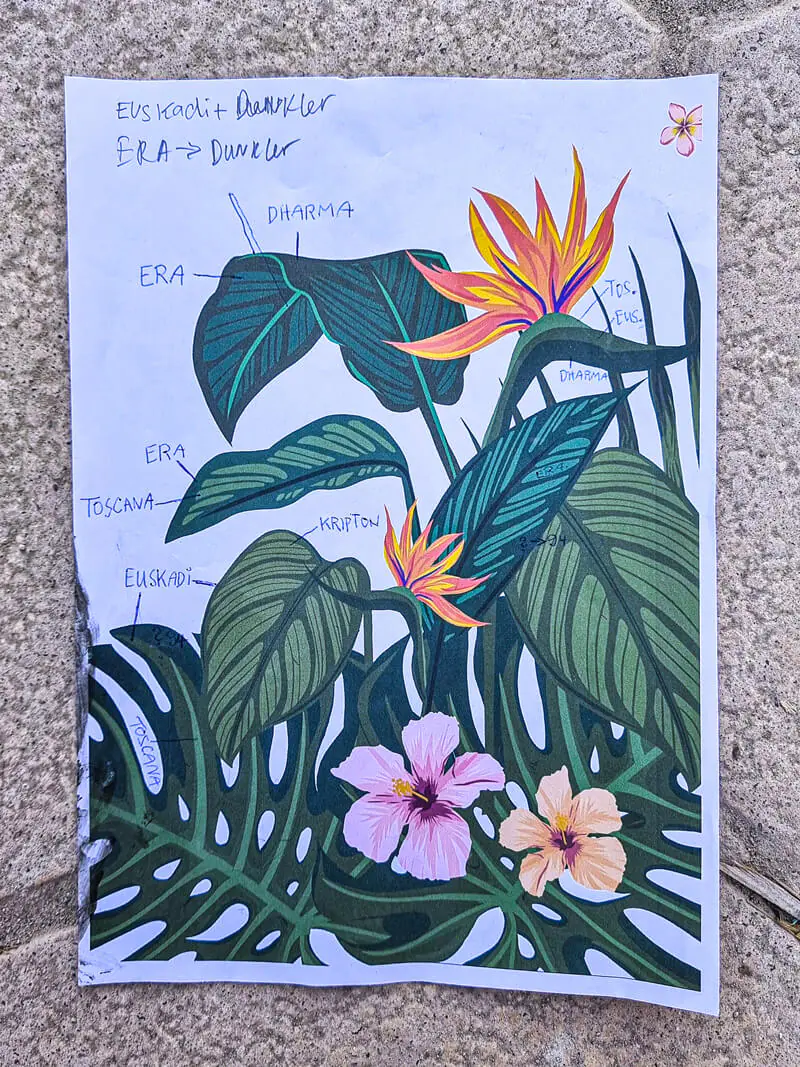 Euskadi + Dunkler
ERA → Dunkler
DHARMA
ERA
TOS.
EUS.
DHARMA
ERA
ERA
TOSCANA
KRIPTON
EUSKADI
TOSCANA